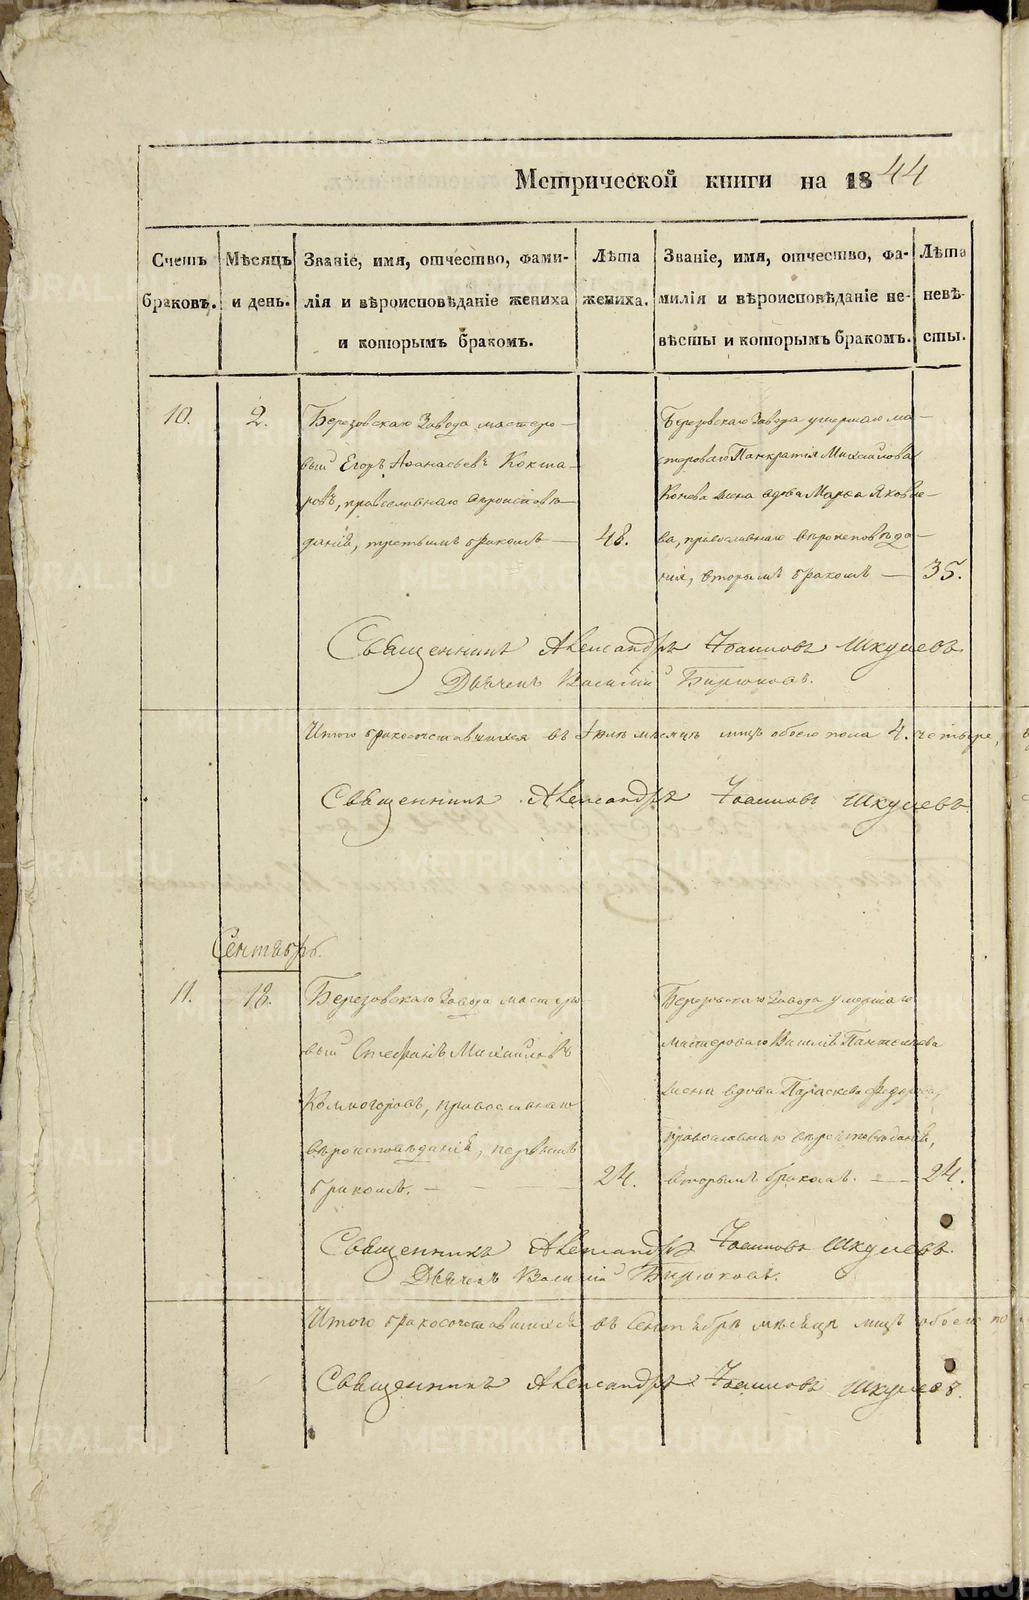 Метрической книги на 1844
Счетъ браковъ.
Мѣсяцъ и день.
Званіе, имя, отчество, фами-
лія и вѣроисповѣданіе жениха
и которымъ бракомъ.
Лѣта
жениха.
Званіе, имя, отчество, фа-
милія и вѣроисповѣданіе не-
вѣсты и которымъ бракомъ.
Лѣта
невѣ-
сты.
10.
2.
Березовскаго Завода мастеро-
вый Егоръ Аѳанасьевъ Кокша-
ровъ, православнаго вѣроисповѣ-
данія, третьимъ бракомъ
48.
Березовскаго Завода умершаго ма-
стероваго Панкратія Михайлова
Конева жена вдова Марѳа Яковле-
ва, православнаго вѣроисповѣда-
нія, вторымъ бракомъ
35.
Священникъ Александръ Іоанновъ Шкулевъ
Дьячекъ Василій Бирюковъ.
Итого бракосочетавшихся въ Іюлѣ мѣсяцѣ лицъ обоего пола 4. четыре,
Священникъ Александръ Іоанновъ Шкулевъ
Сентябрь.
11.
18.
Березовскаго Завода мастеро-
вый Стефанъ Михайловъ
Колмогоровъ, православнаго
вѣроисповѣданія, первымъ
бракомъ.
24.
Березовскаго Завода умершаго
мастероваго Василія Пантелѣева
жена вдова Параскева Федорова,
православнаго вѣроисповѣданія,
вторымъ бракомъ.
24.
Священникъ Александръ Іоанновъ Шкулевъ.
Дьячекъ Василій Бирюковъ.
Итого бракосочетавшихся въ Сентябрѣ мѣсяцѣ лицъ обоего по
Священникъ Александръ Іоанновъ Шкулевъ.
METRIKI.GASO-URAL.RU